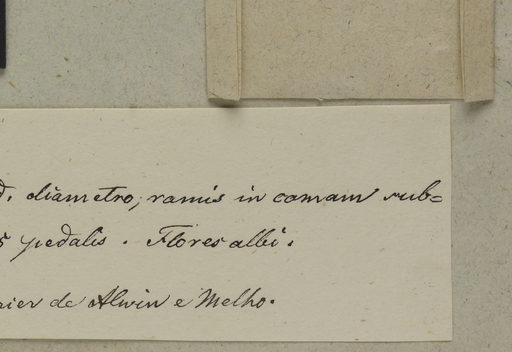 diametro, ramis in comam sub=
pedalis. Flores albi.
de Alwin e Melho.